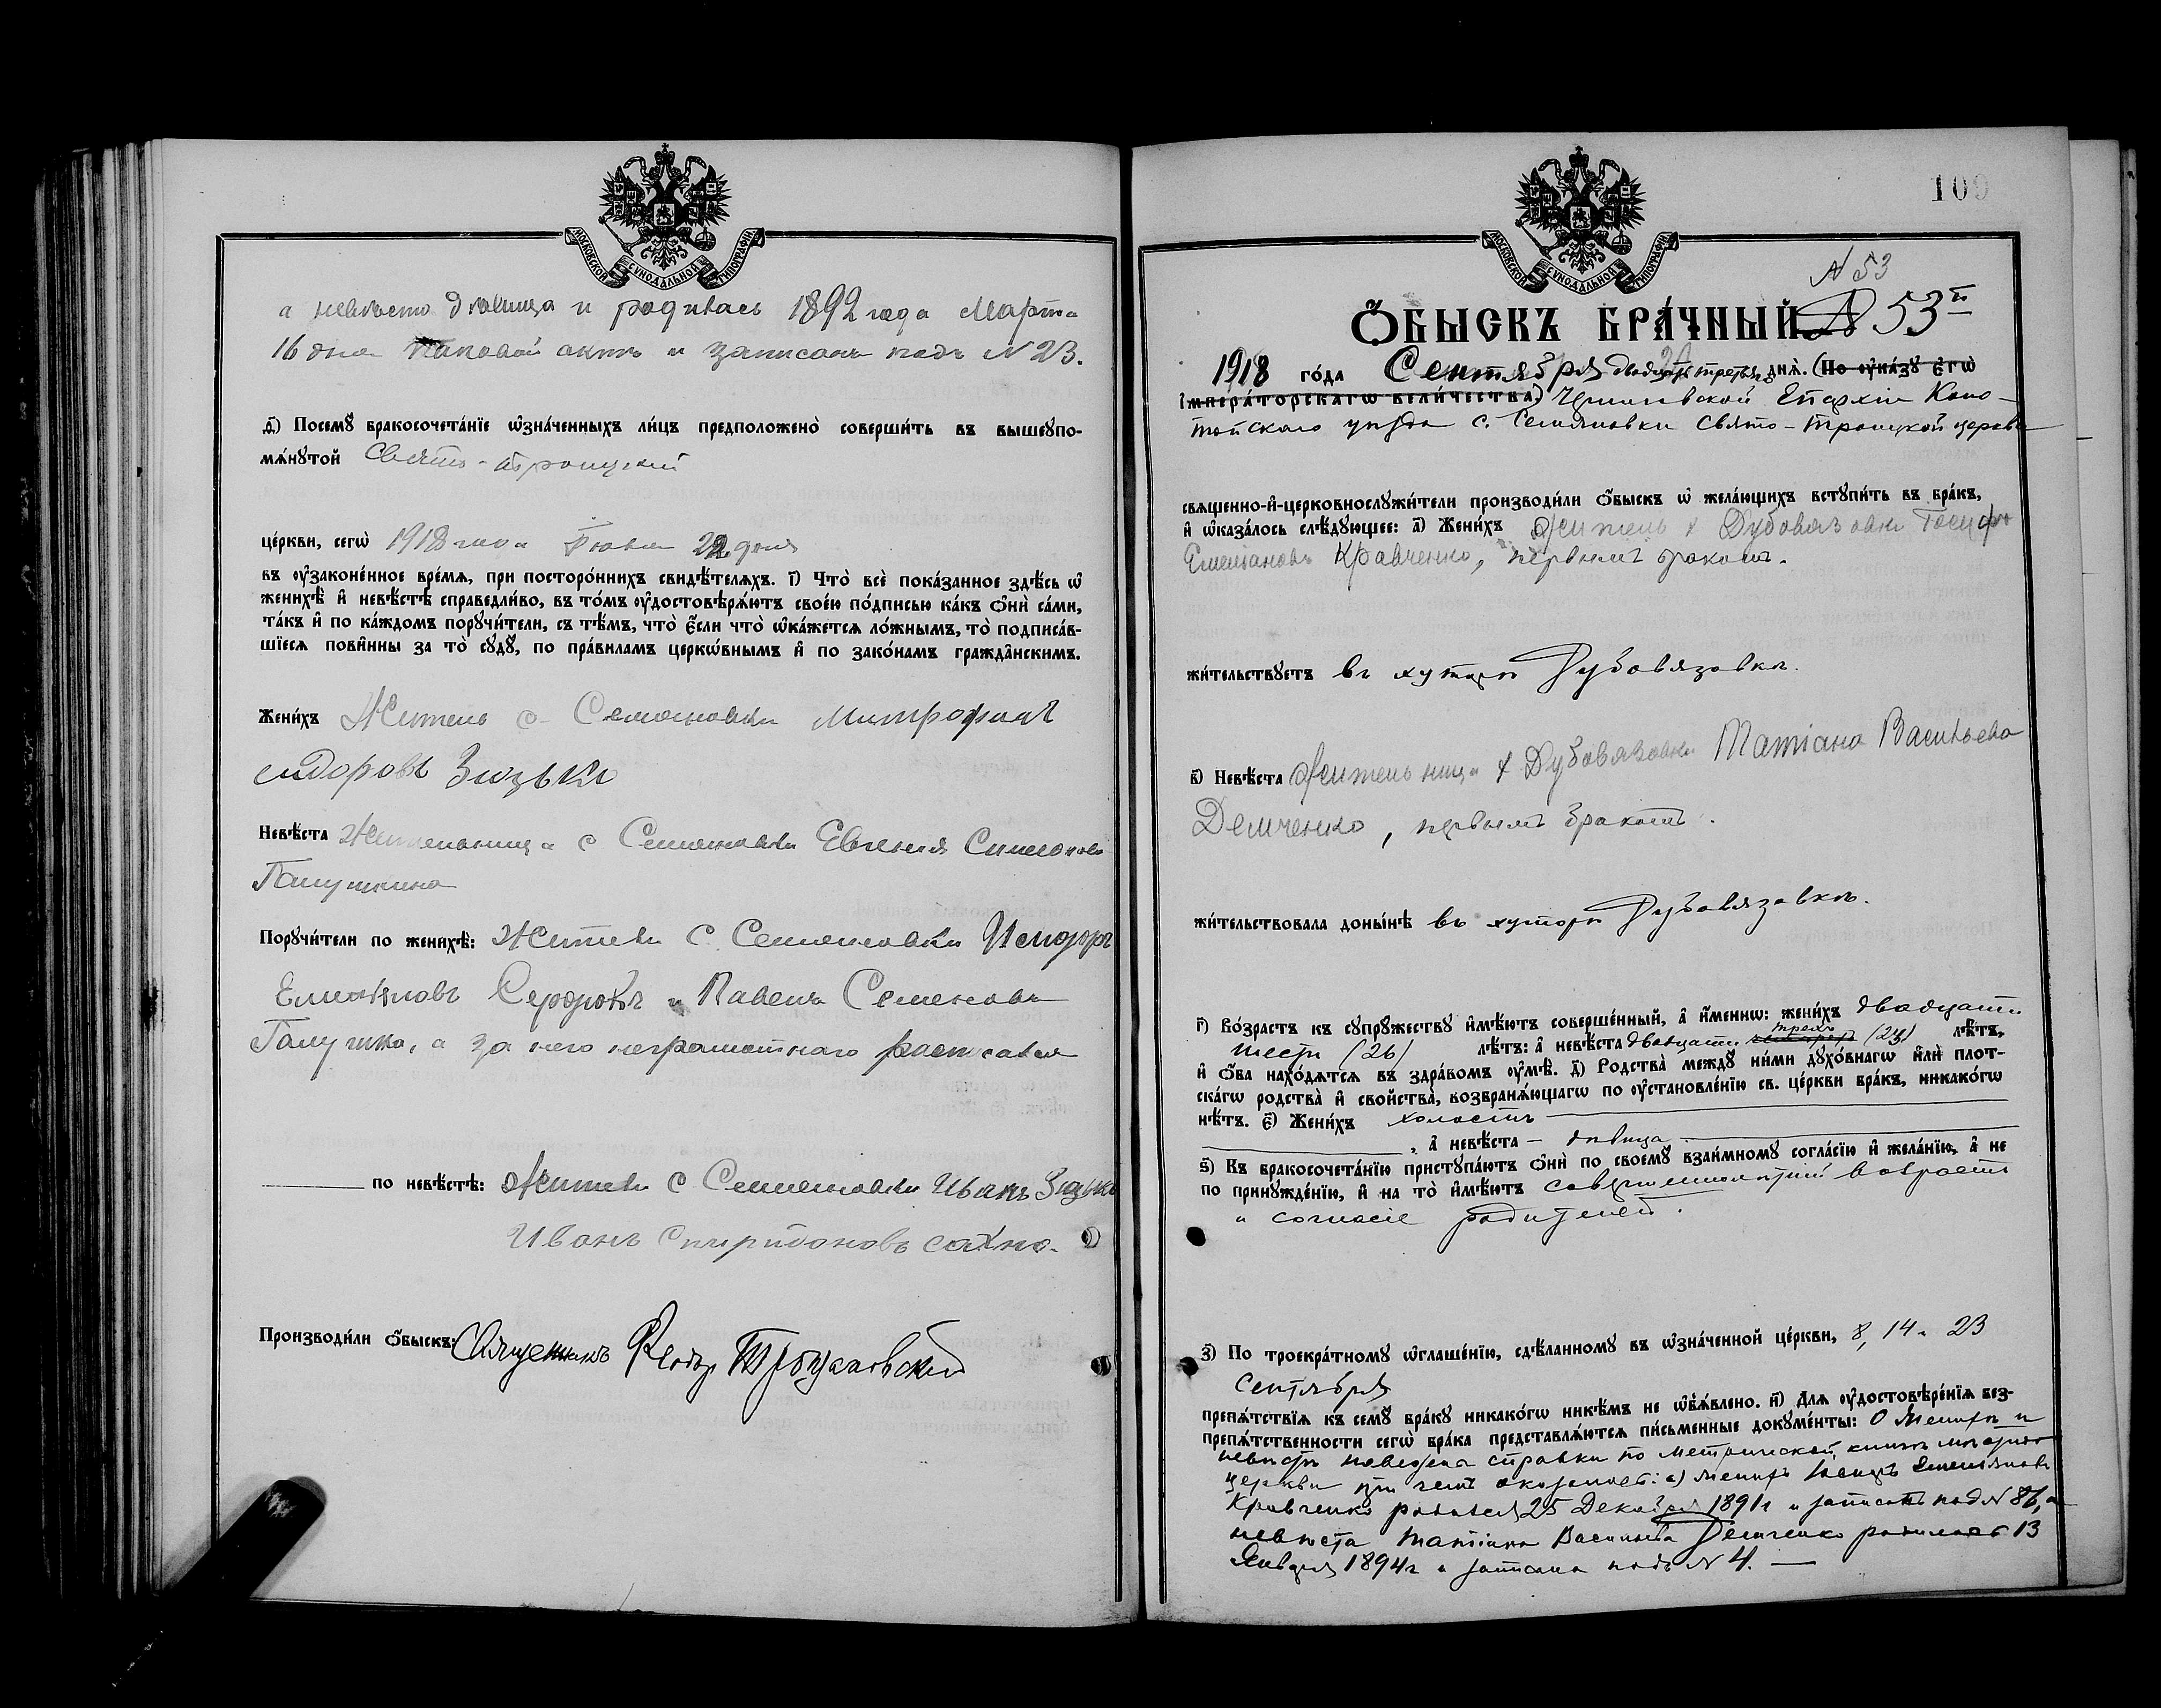 МОСКОВСКОЙ СѴНОДАЛЬНОЙ ТИПОГРАФІИ
а невѣста дѣвица и родилась 1892 года Марта
16 дня каковой актъ и записанъ подъ N 23.
д҃) Посемꙋ̀ бракосочета́нїе ѡ҆зна́ченныхъ ли́цъ предположено̀ соверши́ть въ вышеꙋпо-
мѧ́нꙋтой Свято-Троицкой
це́ркви, сегѡ̀ 1918 года Іюня 22 дня
въ ᲂу҆зако́ненное вре́мѧ, при посторо́ннихъ свидѣ́телѧхъ. і҃) Что̀ всѐ пока́занное здѣ́сь ѡ҆
женихѣ̀ и҆ невѣ́стѣ справедли́во, въ то́мъ ᲂу҆достовѣрѧ́ютъ свое́ю по́дписью ка́къ ѻ҆нѝ са́ми,
та́къ и҆ по ка́ждомъ порꙋчи́тели, съ тѣ́мъ, что̀ є҆́сли что̀ ѡ҆ка́жетсѧ ло́жнымъ, то̀ подписа́в-
шїесѧ пови́нны за то̀ сꙋдꙋ̀, по пра́виламъ церкѡ́внымъ и҆ по зако́намъ гражда̑нскимъ.
Жени́хъ Житель с. Семяновки Митрофанъ
сидоровъ Зюзько
Невѣ́ста Жительница с Семяновки Евгенія Симеонова
Галушкина
Порꙋчи́тели по женихѣ̀: Жители с. Семяновки Исидоръ
Емельяновъ и Павелъ Семеновъ
Галушко, а за него неграмотнаго росписался
по невѣ́стѣ: Жители с Семяновки Иванъ Зюзько
Иванъ Спиридоновъ сахно.
Производи́ли ѻ҆́быскъ: Священникъ Ѳеодоръ
109
МОСКОВСКОЙ СѴНОДАЛЬНОЙ ТИПОГРАФІИ
N 53
Ѻ҆́БЫСКЪ БРА́ЧНЫЙ N 53й
1918 го́да Сентября двадцать третьяго днѧ̀. (По ᲂу҆ка́зꙋ є҆гѡ̀
і҆мпера́торскагѡ вели́чества) Черниговской Епархіи Коно-
топскаго уѣзда с. Семяновки Свято-Троицкой церкви
свѧщенно-и҆-церковнослꙋжи́тели производи́ли ѻ҆́быскъ ѡ҆ жела́ющихъ встꙋпи́ть въ бра́къ,
и҆ ѡ҆каза́лось слѣ́дꙋющее: а҃) Жени́хъ житель х Дубовязовки Іосифъ
Емельяновъ Кравченко, первымъ бракомъ.
жи́тельствꙋетъ въ хуторѣ Дубовязовкѣ.
в҃) Невѣ́ста жительница х Дубовязовки Татіана Васильева
Демченко, первымъ бракомъ.
жи́тельствовала доны́нѣ въ хуторѣ Дубовязовкѣ.
г҃) Во́зрастъ къ сꙋпрꙋ́жествꙋ и҆мѣ́ютъ соверше́нный, а҆ и҆́меннѡ: жени́хъ двадцати
шести (26) лѣ́тъ: а҆ невѣ́ста двадцати трехъ (23) лѣ́тъ,
и҆ ѻ҆́ба нахо́дѧтсѧ въ здра́вомъ ᲂу҆мѣ̀. д҃) Родства̀ междꙋ̀ ни́ми дꙋхо́внагѡ и҆лѝ плот-
ска́гѡ родства̀ и҆ сво́йства, возбранѧ́ющагѡ по ᲂу҆становле́нїю св. це́ркви бра́къ, никако́гѡ
нѣ́тъ. є҃) Жени́хъ холостъ
, а҆ невѣ́ста – дѣвица
ѕ҃) Къ бракосочета́нїю пристꙋпа́ютъ ѻ҆нѝ по своемꙋ̀ взаи́мномꙋ согла́сїю и҆ жела́нїю, а҆ не
по принꙋжде́нїю, и҆ на то̀ и҆мѣ́ютъ совершеннолѣтній возрастъ
и согласіе родителей.
з҃) По троекра́тномꙋ ѡ҆глаше́нїю, сдѣ́ланномꙋ въ ѡ҆зна́ченной це́ркви, 8, 14 и 23
Сентября
препѧ́тствїѧ къ семꙋ̀ бра́кꙋ никако́гѡ никѣ́мъ не ѡ҆б̾ѧ́влено. и҃) Длѧ ᲂу҆достовѣре́нїѧ без-
препѧ́тственности сегѡ̀ бра́ка представлѧ́ютсѧ пи́сьменные докꙋме́нты: О женихѣ и
невѣстѣ наведена справки по метрической книгѣ мѣстной
церкви при чемъ оказалось: а) женихъ Іосифъ Емельяновъ
Кравченко родился 25 Декабря 1891г и записанъ под N 86, а
невѣста Татіана Васильева Демченко родилась 13
Января 1894г и записана подъ N 4. —